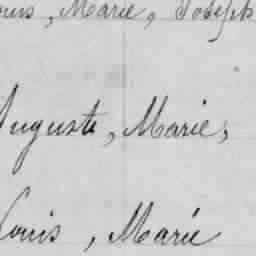 Louis, Marie, Joseph
Auguste, Marie,
Louis, Marie